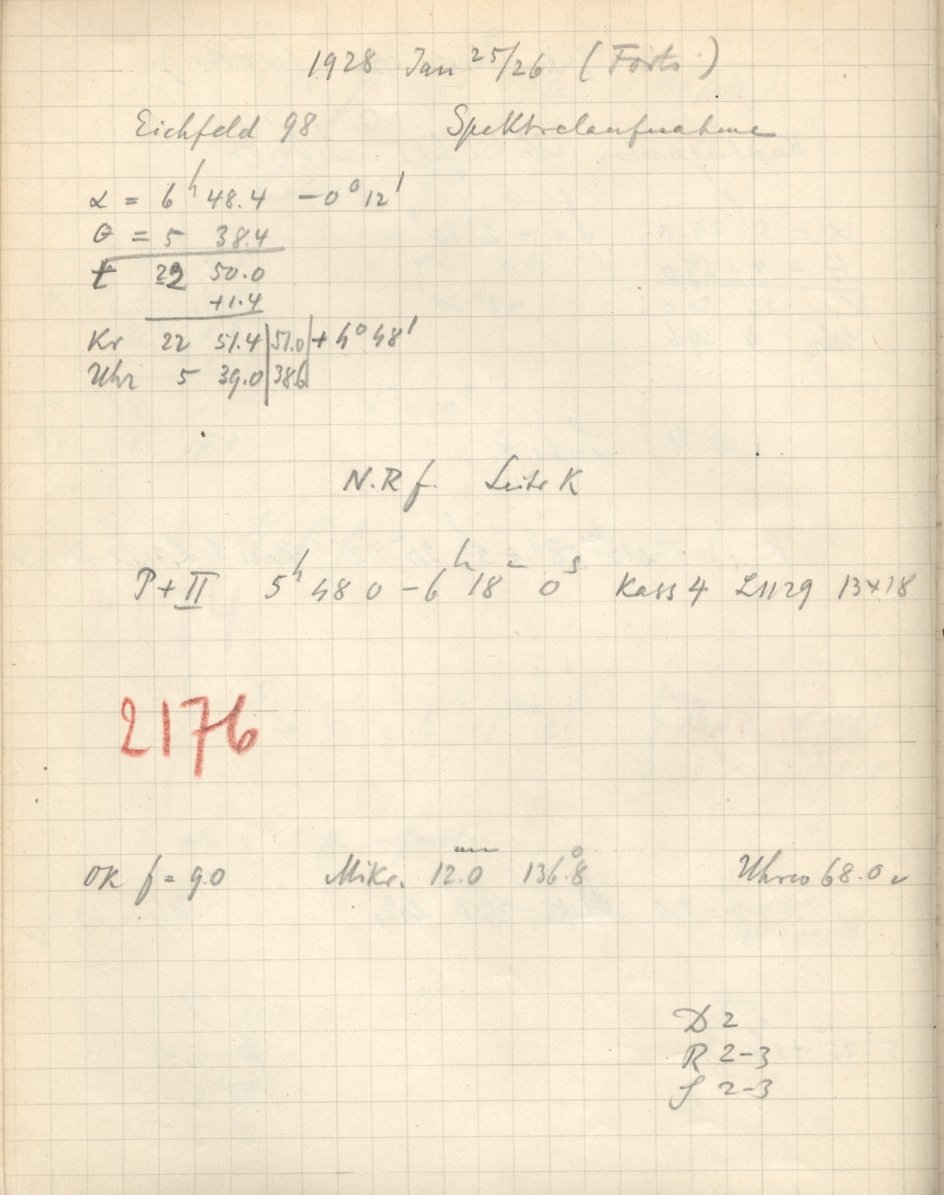 1928 Jan 25/26 (Forts.)
Eichfeld 98 Spektralaufnahme
α = 6ʰ 48.4 −0° 12'
θ = 5 38.4
t 22 50.0
+1.4
Kr 22 51.4 | 51.0 | + 4° 48'
Uhr 5 39.0 | 38.6
N.R f. Seite K
P + II 5ʰ 48 0 − 6ʰ 18ᵐ 0ˢ Kass 4 13×18
2176
OK f = 9.0 Mikr. 12.0 136.8° 68.0
D 2
R 2-3
S 2-3